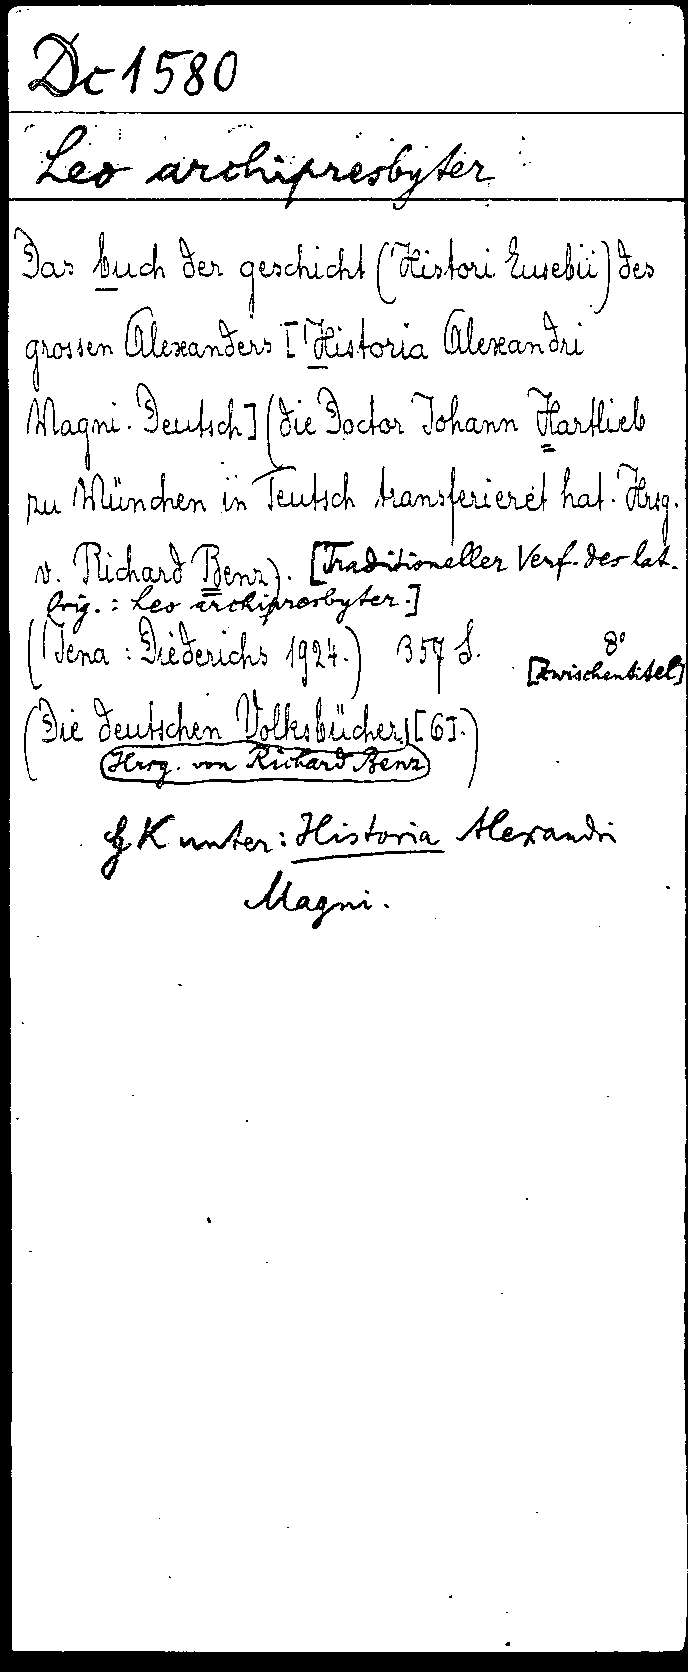 Dc 1580
Leo archipresbyter
Das buch der geschicht (Histori Eusebii) des
grossen Alexanders [Historia Alexandri
Magni. Deutsch] (die Doctor Johann Hartlieb
zu München in Teutsch transferieret hat. Hrsg.
v. Richard Benz). [Traditioneller Verf. des lat.
Orig.: Leo archipresbyter.]
(Jena: Diederichs 1924.) 357 S. 8°
[Zwischentitel]
(Die deutschen Volksbücher. [6].)
Hrsg. von Richard Benz
GK unter: Historia Alexandri
Magni.